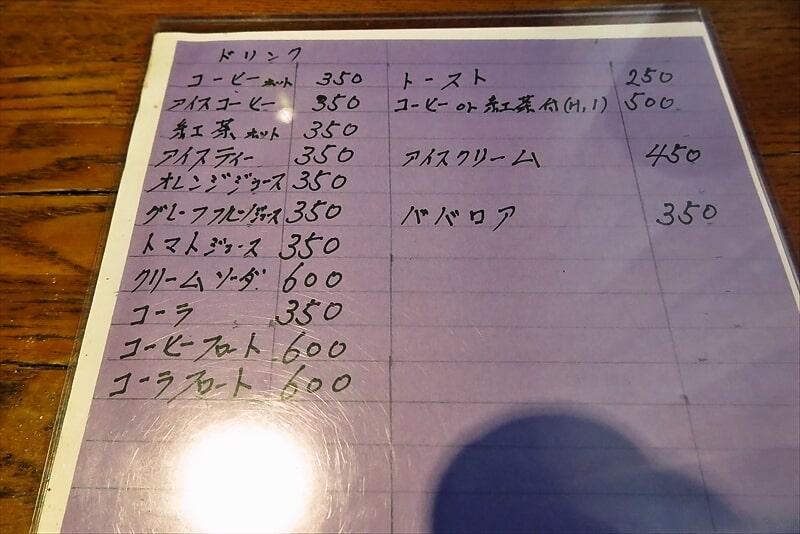 ドリンク
コーヒー ホット 350
アイスコーヒー 350
紅茶 ホット 350
アイスティー 350
オレンジジュース 350
グレープフルーツジュース 350
トマトジュース 350
クリームソーダ 600
コーラ 350
コーヒーフロート 600
コーラフロート 600
トースト 250
コーヒー or 紅茶付(H,I) 500
アイスクリーム 450
ババロア 350